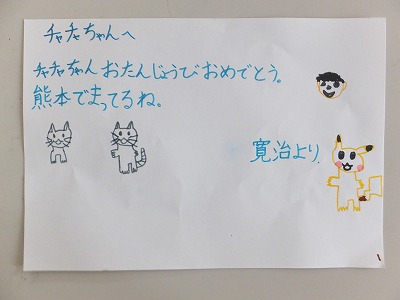 チャチャちゃんへ
チャチャちゃんおたんじょうびおめでとう。
熊本でまってるね。
寛治より